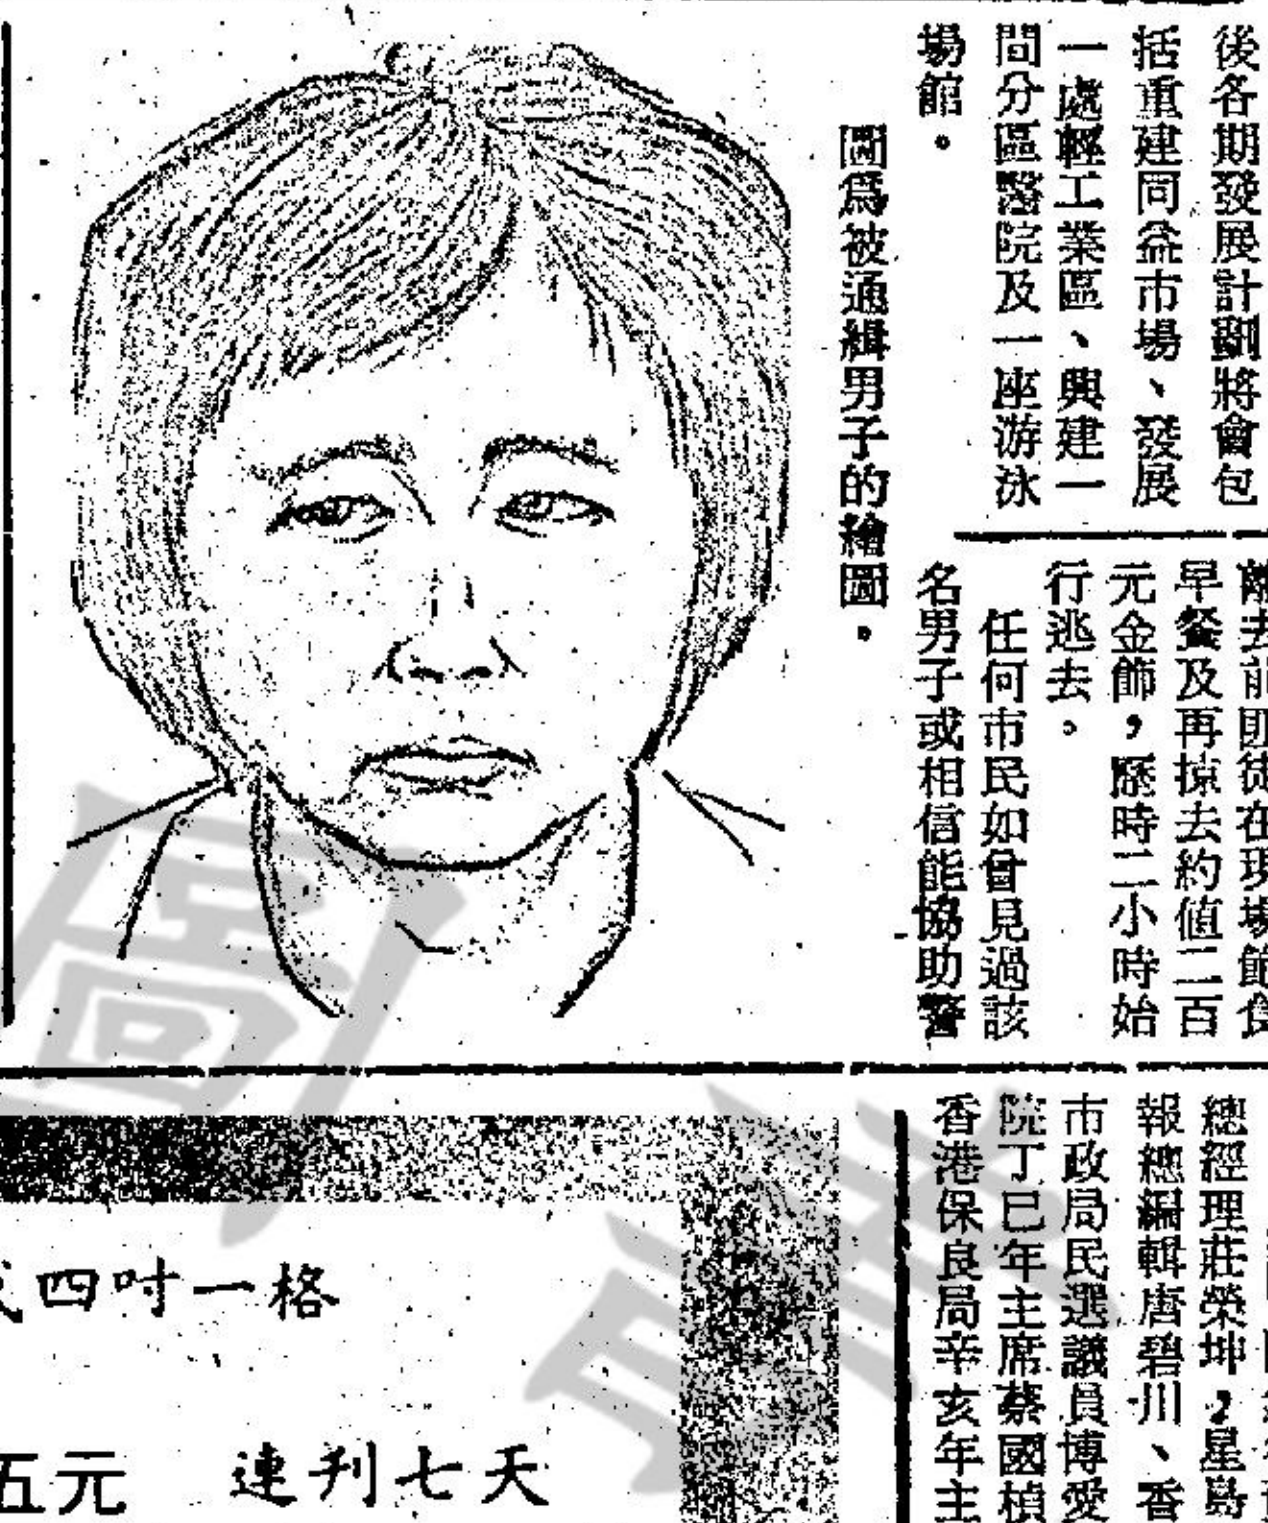 後各期發展計劃將會包
括重建同益市場、發展
一處輕工業區、興建一
間分區醫院及一座游泳
場館。
圖爲被通緝男子的繪圖。
離去前匪徒在現場飽食
早餐及再掠去約值二百
元金飾，歷時二小時始
行逃去。
任何市民如曾見過該
名男子或相信能協助警
總經理莊榮坤，星島
報總編輯唐碧川、香
市政局民選議員博愛
院丁巳年主席蔡國楨
香港保良局辛亥年主
四吋一格
五元 連刋七天
圖